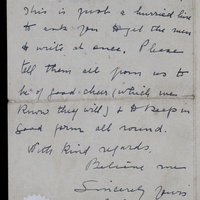 This is just a hurried line
to ask you to get the men
to write at once. Please
tell them all from us to
be of good cheer (which we
know they will) & to keep in
good form all round.
With kind regards.
Believe me
Sincerely yours